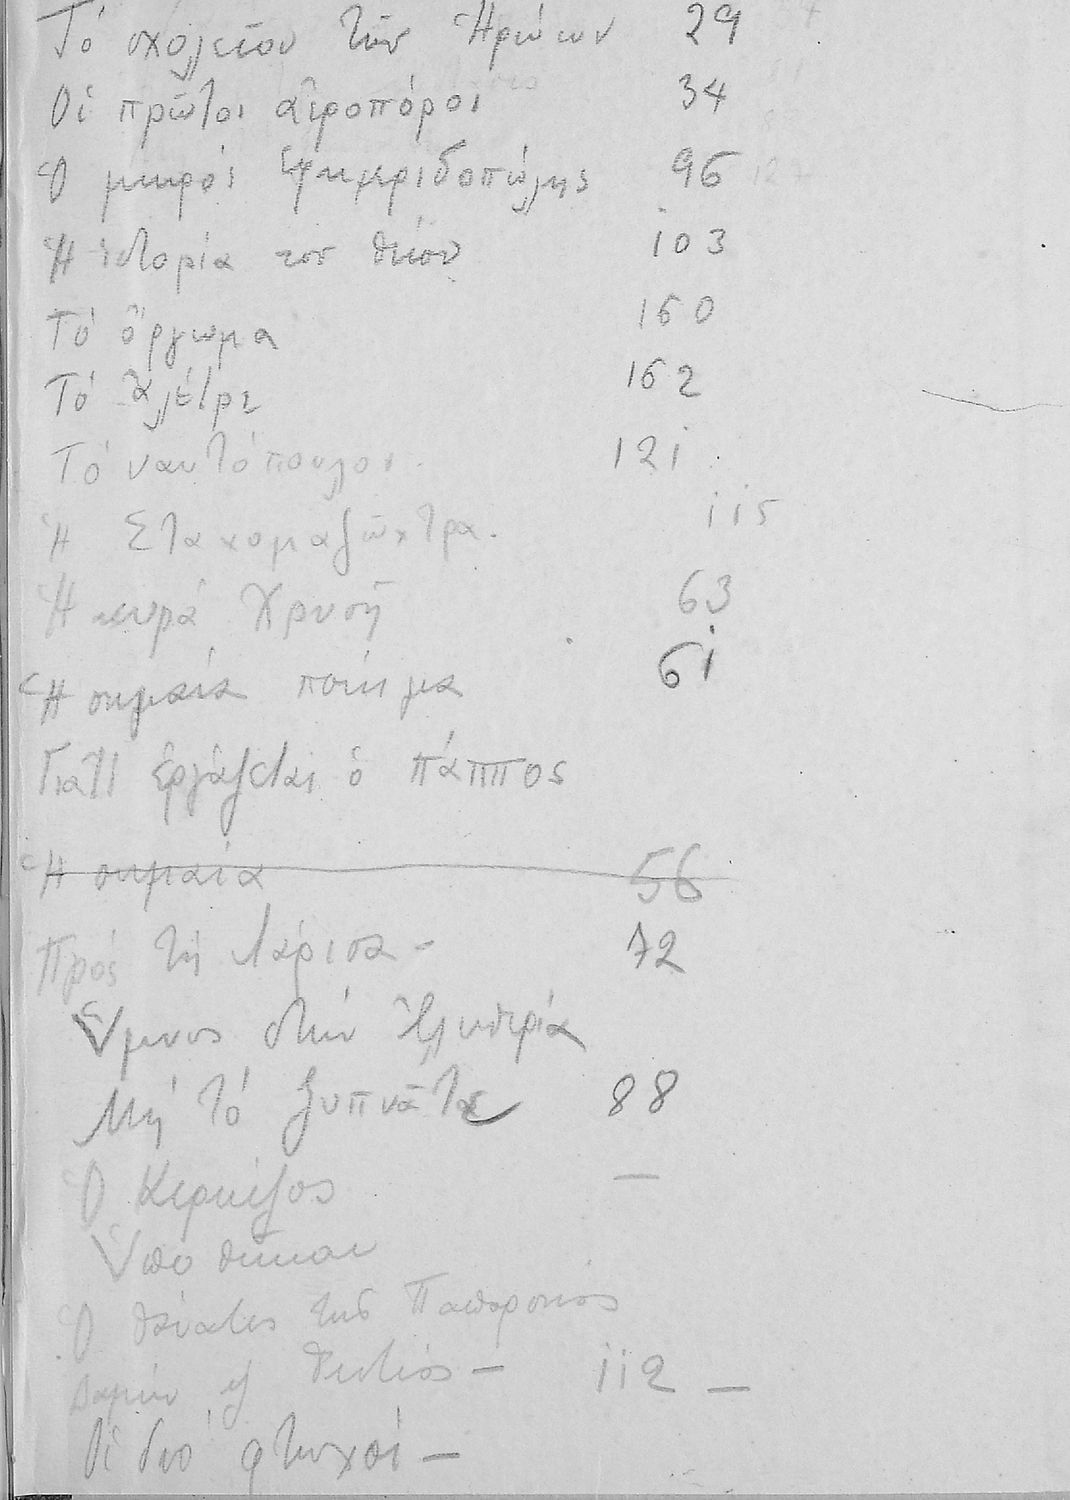 Τό σχολεῖον τῶν Ἡρώων 29
Οἱ πρῶτοι ἀεροπόροι 34
Ὁ μικρός ἐφημεριδοπώλης 96
Ἡ ἱστορία τοῦ θείου 103
Τό ὄργωμα 160
Τό ἀλέτρι 162
Τό ναυτόπουλο. 121
Ἡ Σταχομαζώχτρα. 115
Ἡ κυρά Χρυσῆ 63
Ἡ σημαία ποίημα 61
Γιατί ἐργάζεται ὁ πάππος
Ἡ σημαία 56
Πρός τή Λάρισα - 72
Ὕμνος στήν Ἐλευθερία
Μή τό ξυπνᾶτε 88
Ὁ Κερκέζος —
Ὑποθῆκαι
Ὁ θάνατος τῆς
Δαμών ἤ Φιντίας — 112 —
Οἱ δυό φτωχοί —